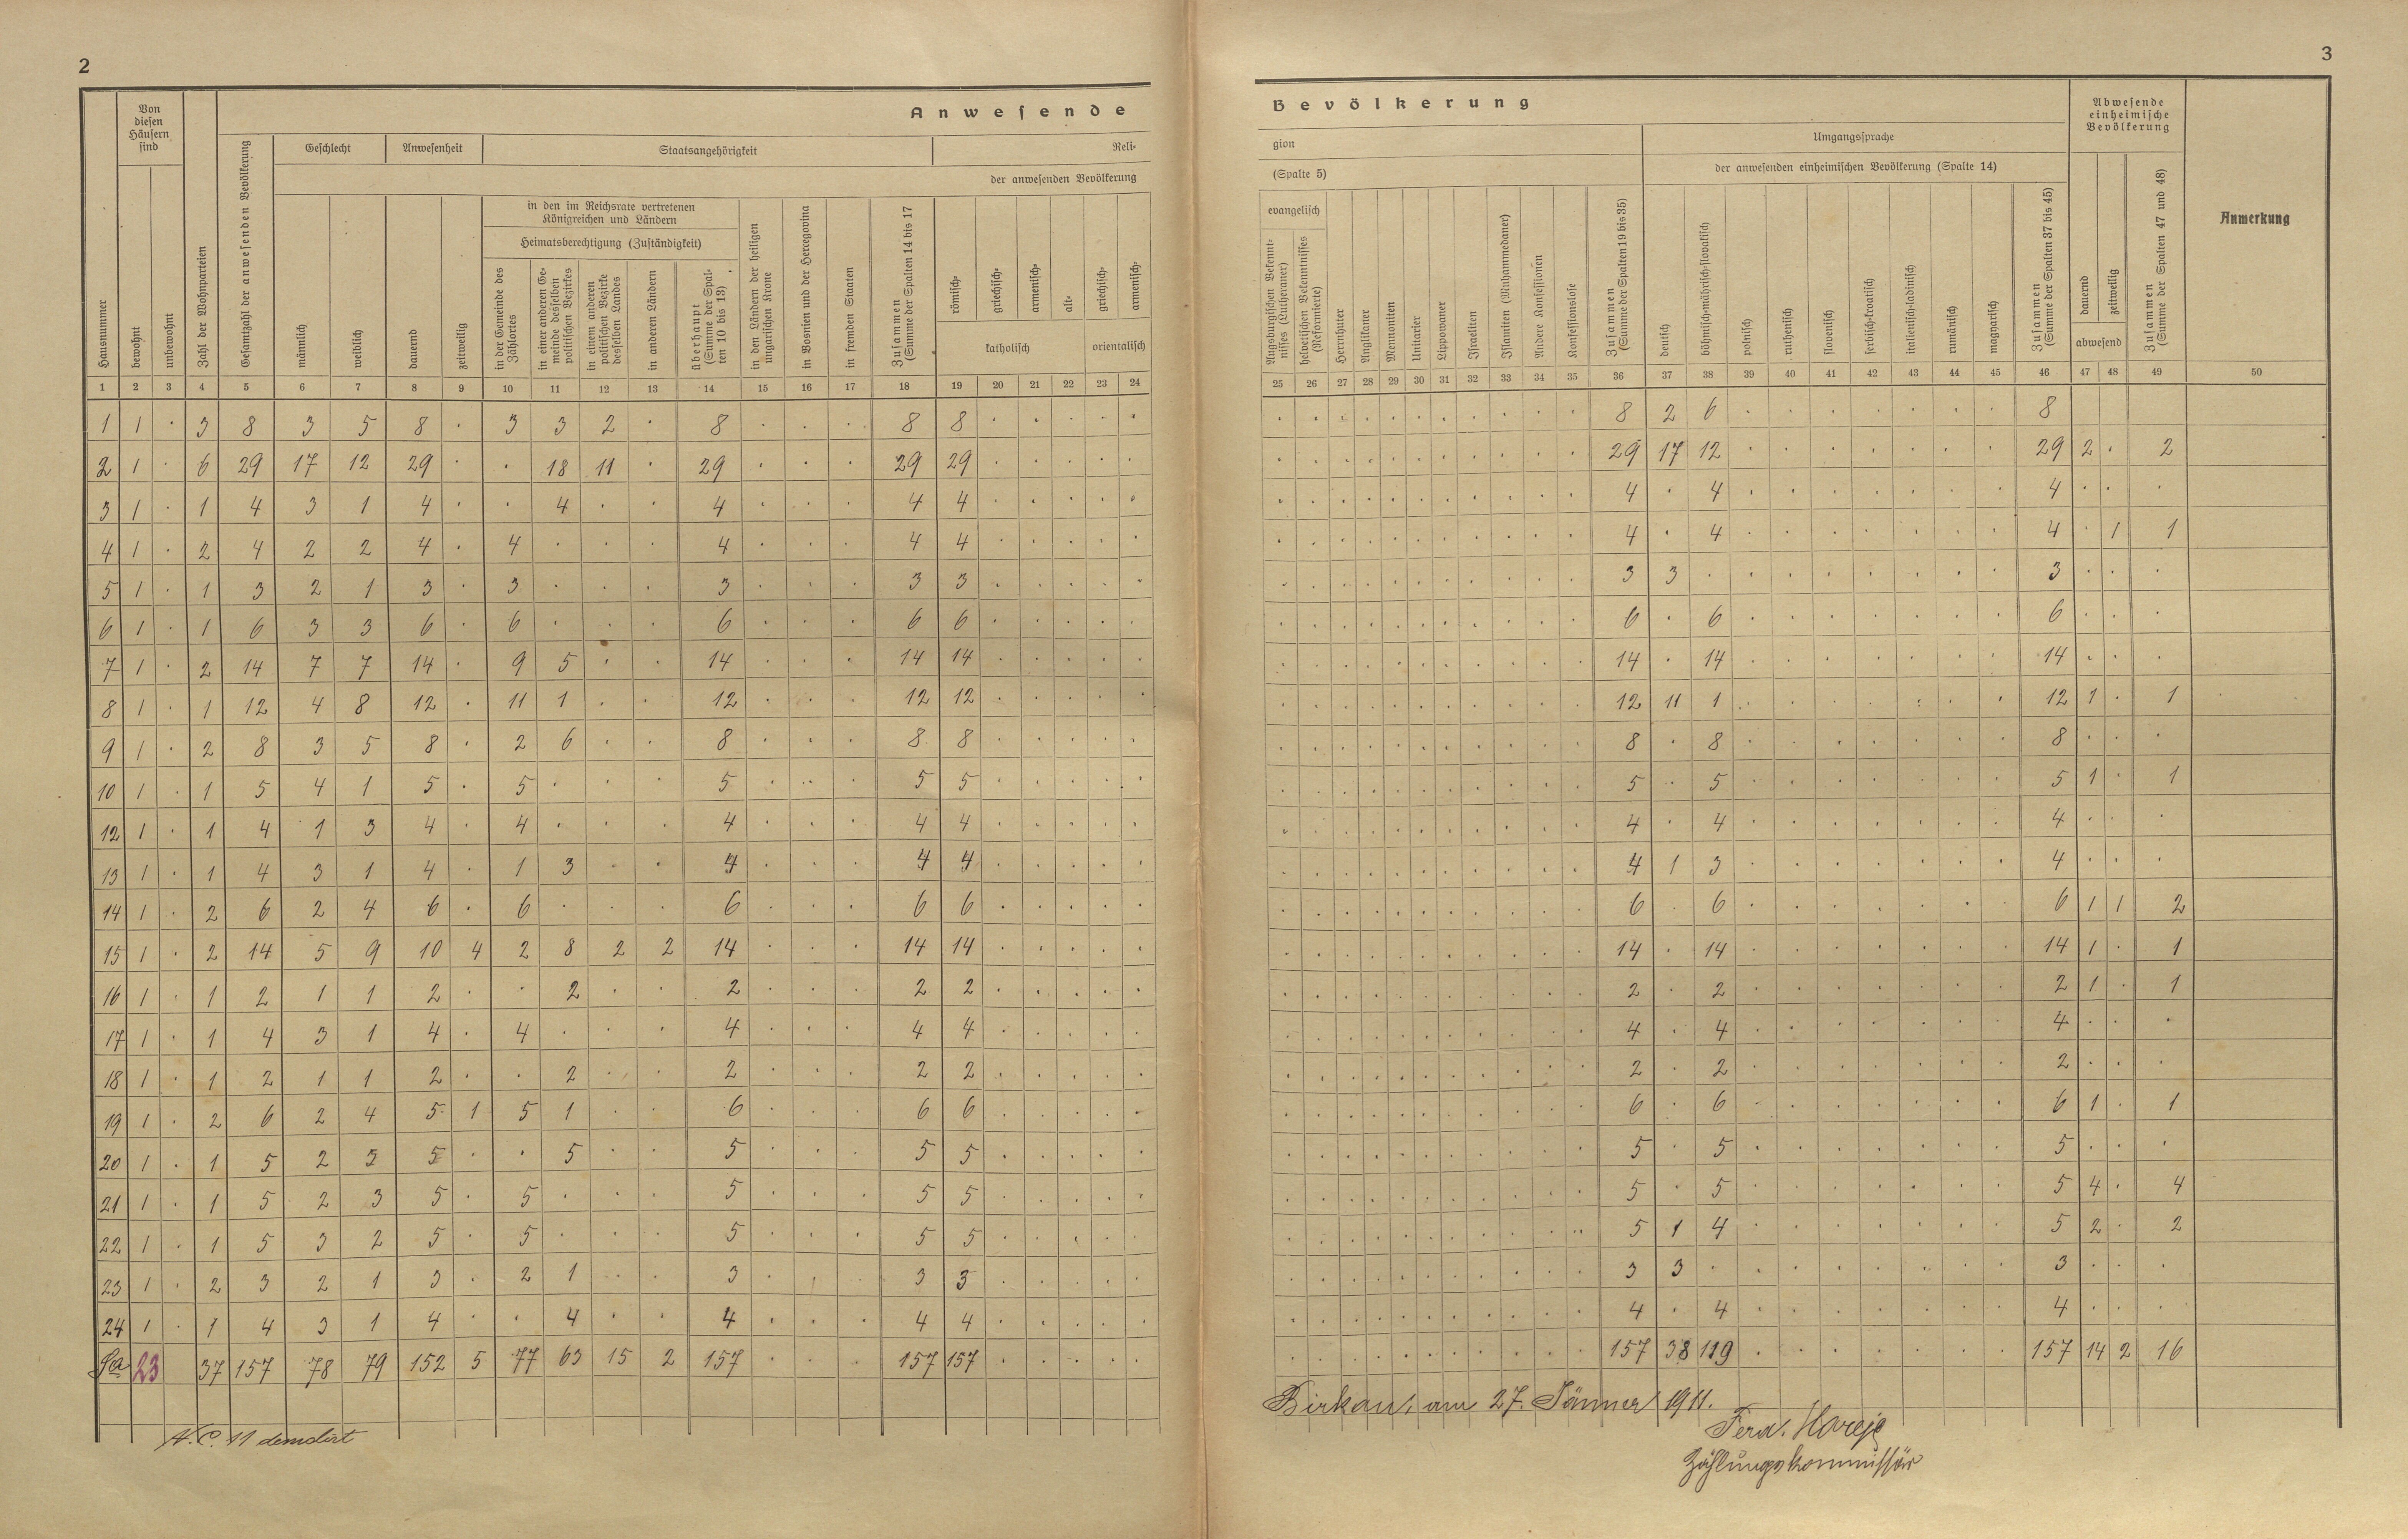 2
3
Anwesende
Bevölkerung
Hausnummer
Von diesen Häusern sind
bewohnt
unbewohnt
Zahl der Wohnparteien
Gesamtzahl der anwesenden Bevölkerung
Geschlecht
Anwesenheit
Staatsangehörigkeit
Reli-
gion
der anwesenden Bevölkerung
(Spalte 5)
männlich
weiblich
dauernd
zeitweilig
in den im Reichsrate vertretenen Königreichen und Ländern
Heimatsberechtigung (Zuständigkeit)
in der Gemeinde des Zählortes
in einer anderen Ge-
meinde desselben
politischen Bezirkes
in einem anderen
politischen Bezirke
desselben Landes
in anderen Ländern
überhaupt
(Summe der Spal-
ten 10 bis 13)
in den Ländern der heiligen
ungarischen Krone
in Bosnien und der Hercegovina
in fremden Staaten
Zusammen
(Summe der Spalten 14 bis 17
römisch-
griechisch-
armenisch-
alt-
katholisch
griechisch-
armenisch-
orientalisch
evangelisch
Augsburgischen Bekennt-
nisses (Lutheraner)
helvetischen Bekenntnisses
(Reformierte)
Herrnhuter
Anglikaner
Mennoniten
Unitarier
Lippowaner
Israeliten
Islamiten (Muhammedaner)
Andere Konfessionen
Konfessionslose
Zusammen
(Summe der Spalten 19 bis 35)
Umgangssprache
der anwesenden einheimischen Bevölkerung (Spalte 14)
deutsch
böhmisch-mährisch-slovakisch
polnisch
ruthenisch
slovenisch
serbisch-kroatisch
italienisch-ladinisch
rumänisch
magyarisch
Zusammen
(Summe der Spalten 37 bis 45)
Abwesende
einheimische
Bevölkerung
dauernd
zeitweilig
abwesend
Zusammen
(Summe der Spalten 47 und 48)
Anmerkung
1 2 3 4 5 6 7 8 9 10 11 12 13 14 15 16 17 18 19 20 21 22 23 24 25 26 27 28 29 30 31 32 33 34 35 36 37 38 39 40 41 42 43 44 45 46 47 48 49 50
1 1 . 3 8 3 5 8 . 3 3 2 . 8 . . . 8 8 . . . . . . . . . . . . . . . . 8 2 6 . . . . . . . 8
2 1 . 6 29 17 12 29 . . 18 11 . 29 . . . 29 29 . . . . . . . . . . . . . . . . 29 17 12 . . . . . . . 29 2 . 2
3 1 . 1 4 3 1 4 . . 4 . . 4 . . . 4 4 . . . . . . . . . . . . . . . . 4 . 4 . . . . . . . 4 . . .
4 1 . 2 4 2 2 4 . 4 . . . 4 . . . 4 4 . . . . . . . . . . . . . . . . 4 . 4 . . . . . . . 4 . 1 1
5 1 . 1 3 2 1 3 . 3 . . . 3 . . . 3 3 . . . . . . . . . . . . . . . . 3 3 . . . . . . . . 3 . . .
6 1 . 1 6 3 3 6 . 6 . . . 6 . . . 6 6 . . . . . . . . . . . . . . . . 6 . 6 . . . . . . . 6 . . .
7 1 . 2 14 7 7 14 . 9 5 . . 14 . . . 14 14 . . . . . . . . . . . . . . . . 14 . 14 . . . . . . . 14 . . .
8 1 . 1 12 4 8 12 . 11 1 . . 12 . . . 12 12 . . . . . . . . . . . . . . . . 12 11 1 . . . . . . . 12 1 . 1
9 1 . 2 8 3 5 8 . 2 6 . . 8 . . . 8 8 . . . . . . . . . . . . . . . . 8 . 8 . . . . . . . 8 . . .
10 1 . 1 5 4 1 5 . 5 . . . 5 . . . 5 5 . . . . . . . . . . . . . . . . 5 . 5 . . . . . . . 5 1 . 1
12 1 . 1 4 1 3 4 . 4 . . . 4 . . . 4 4 . . . . . . . . . . . . . . . . 4 . 4 . . . . . . . 4 . . .
13 1 . 1 4 3 1 4 . 1 3 . . 4 . . . 4 4 . . . . . . . . . . . . . . . . 4 1 3 . . . . . . . 4 . . .
14 1 . 2 6 2 4 6 . 6 . . . 6 . . . 6 6 . . . . . . . . . . . . . . . . 6 . 6 . . . . . . . 6 1 1 2
15 1 . 2 14 5 9 10 4 2 8 2 2 14 . . . 14 14 . . . . . . . . . . . . . . . . 14 . 14 . . . . . . . 14 1 . 1
16 1 . 1 2 1 1 2 . . 2 . . 2 . . . 2 2 . . . . . . . . . . . . . . . . 2 . 2 . . . . . . . 2 1 . 1
17 1 . 1 4 3 1 4 . 4 . . . 4 . . . 4 4 . . . . . . . . . . . . . . . . 4 . 4 . . . . . . . 4 . . .
18 1 . 1 2 1 1 2 . . 2 . . 2 . . . 2 2 . . . . . . . . . . . . . . . . 2 . 2 . . . . . . . 2 . . .
19 1 . 2 6 2 4 5 1 5 1 . . 6 . . . 6 6 . . . . . . . . . . . . . . . . 6 . 6 . . . . . . . 6 1 . 1
20 1 . 1 5 2 3 5 . . 5 . . 5 . . . 5 5 . . . . . . . . . . . . . . . . 5 . 5 . . . . . . . 5 . . .
21 1 . 1 5 2 3 5 . 5 . . . 5 . . . 5 5 . . . . . . . . . . . . . . . . 5 . 5 . . . . . . . 5 4 . 4
22 1 . 1 5 3 2 5 . 5 . . . 5 . . . 5 5 . . . . . . . . . . . . . . . . 5 1 4 . . . . . . . 5 2 . 2
23 1 . 2 3 2 1 3 . 2 1 . . 3 . . . 3 3 . . . . . . . . . . . . . . . . 3 3 . . . . . . . . 3 . . .
24 1 . 1 4 3 1 4 . . 4 . . 4 . . . 4 4 . . . . . . . . . . . . . . . . 4 . 4 . . . . . . . 4 . . .
Sa 23 37 157 78 79 152 5 77 63 15 2 157 . . . 157 157 . . . . . . . . . . . . . . . . 157 38 119 . . . . . . . 157 14 2 16
N.C. 11 demolirt
Birkau, am 27. Jänner 1911.
Ferd. Hareje
Zählungskommissär